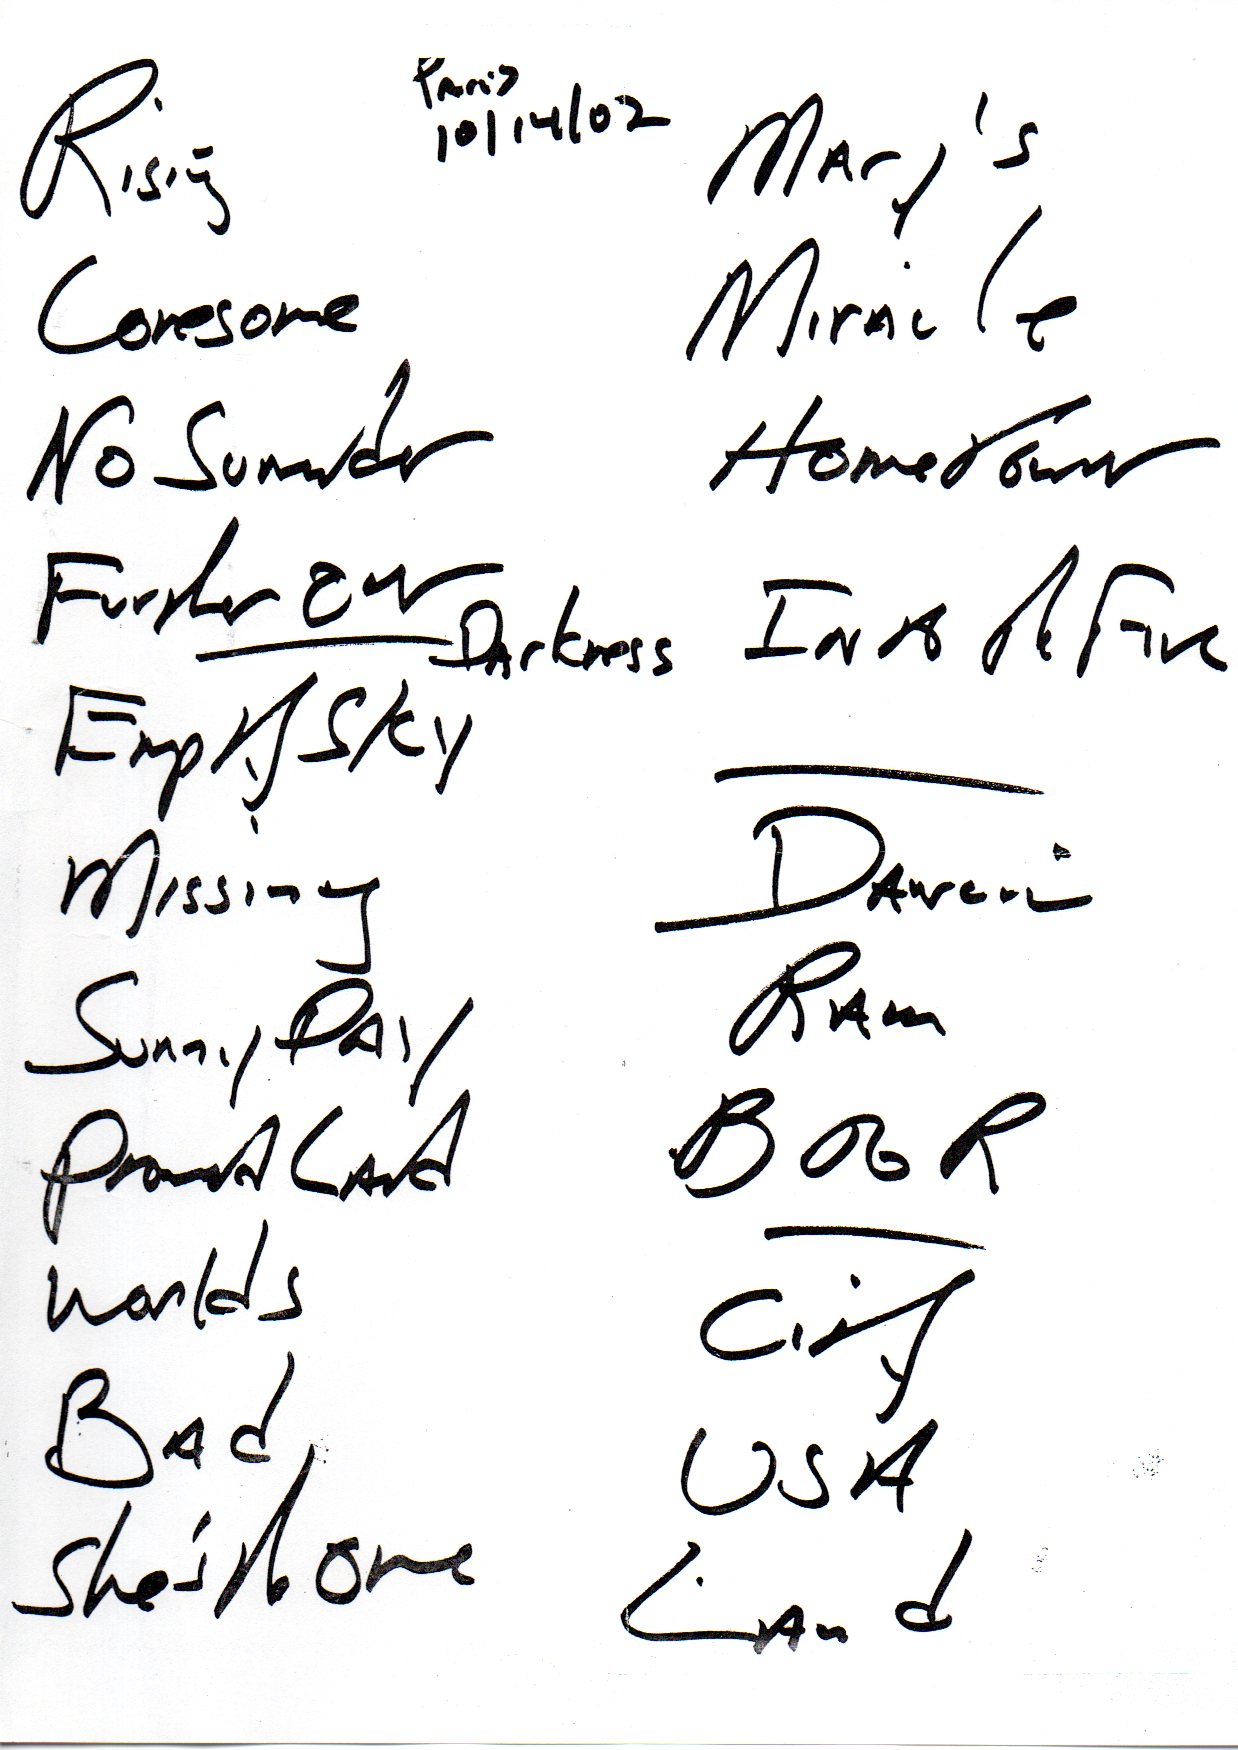 Paris
10/14/02
Rising
Lonesome
No Surrender
Further on
Darkness
Empty Sky
Missing
Sunny Day
Promised Land
Worlds
Bad
She's the one
Mary's
Miracle
Hometown
Into the Fire
Dancin
Ram
BOOR
City
USA
Land